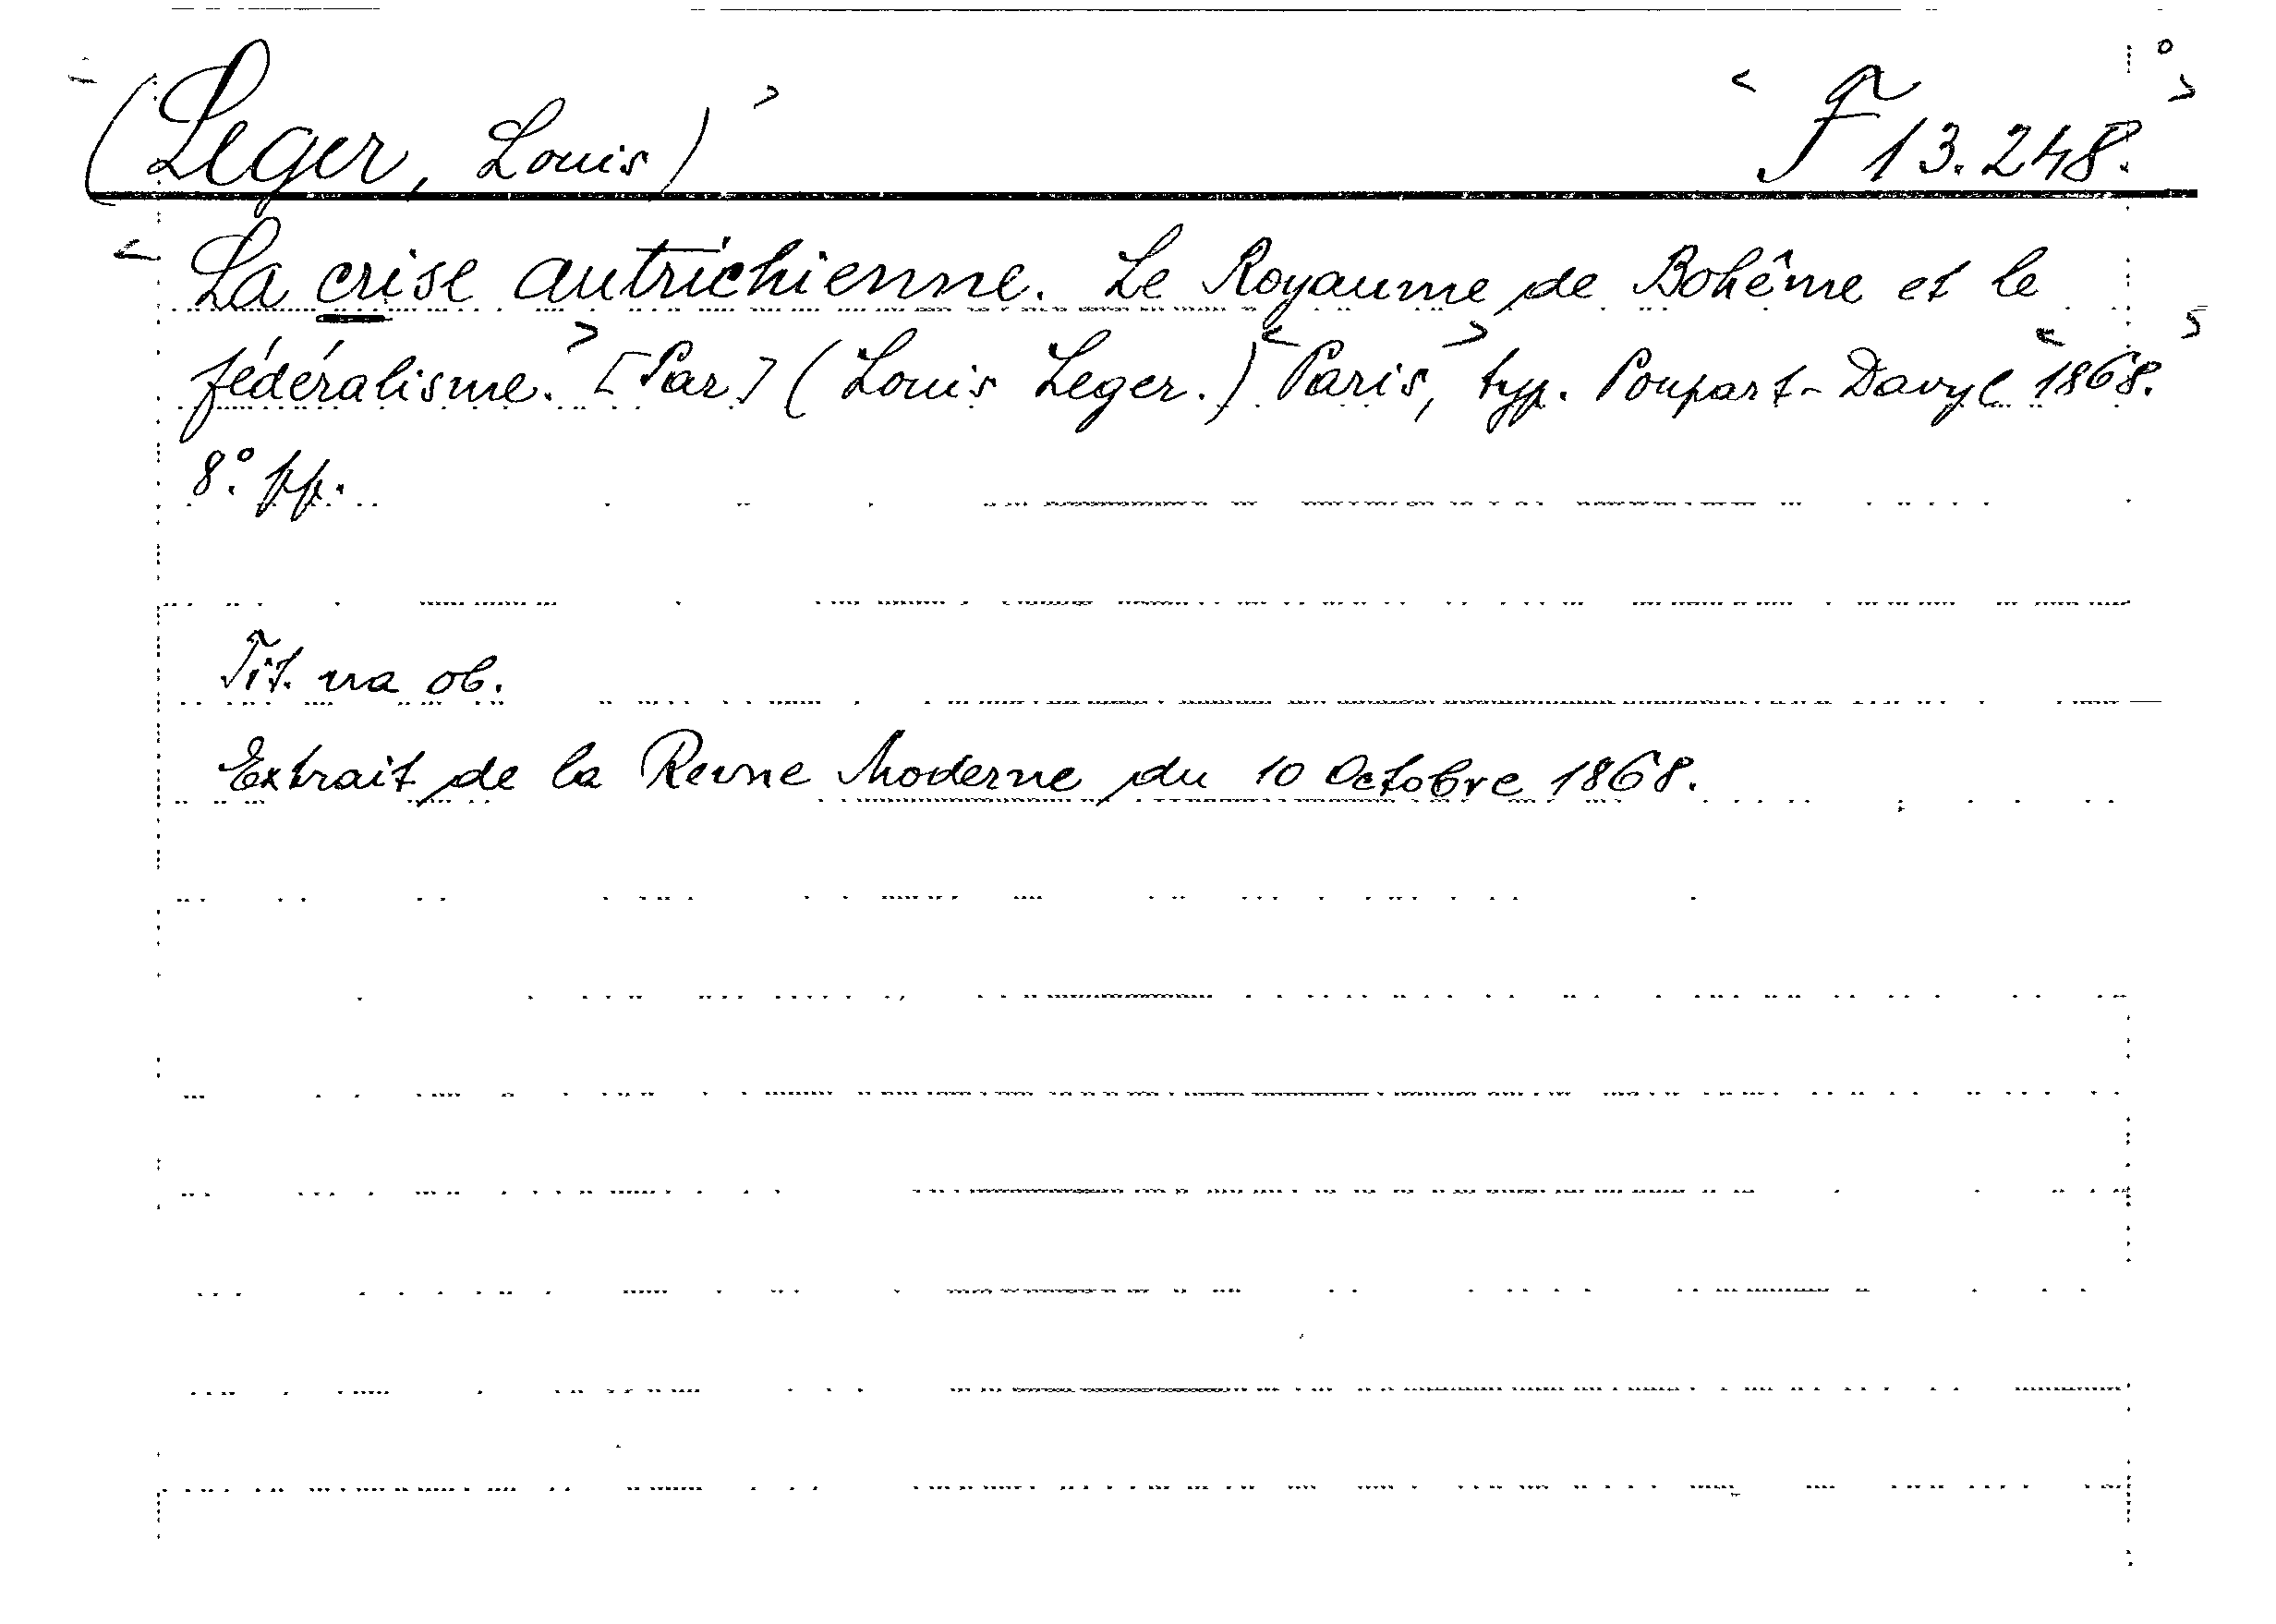 (Leger, Louis) F 13.248.
La crise autrichienne. Le Royaume de Bohême et le
fédéralisme. [Par] (Louis Leger.) Paris, typ. Poupart-Davyl 1868.
8°. pp.
Tit. na ob.
Extrait de la Revue Moderne du 10 Octobre 1868.